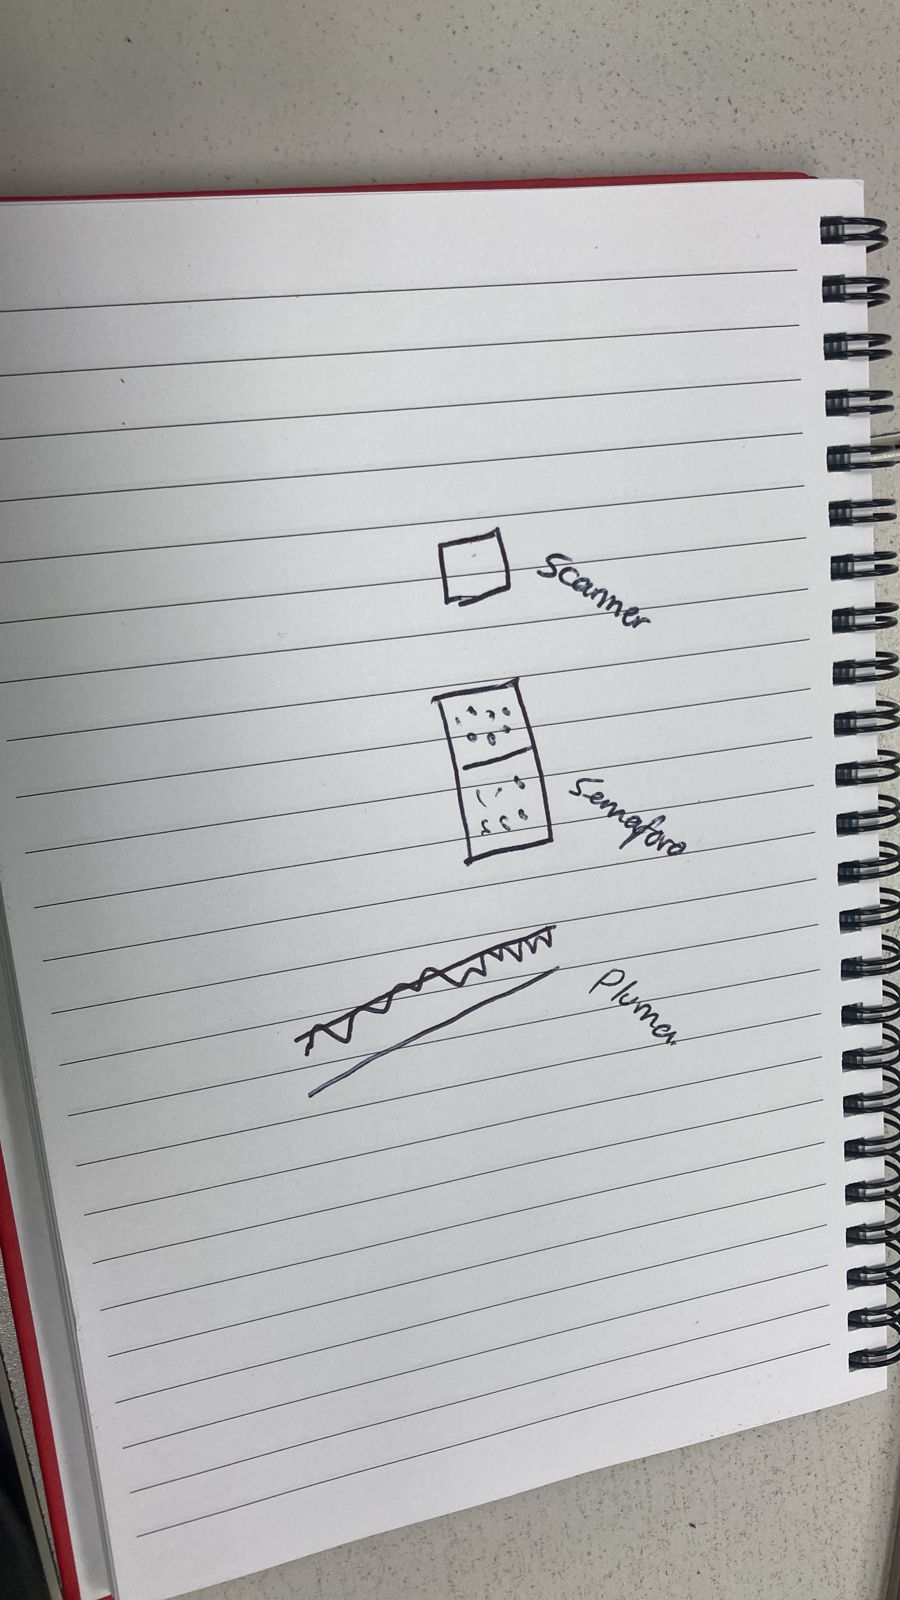 Scanner
Semaforo
Pluma